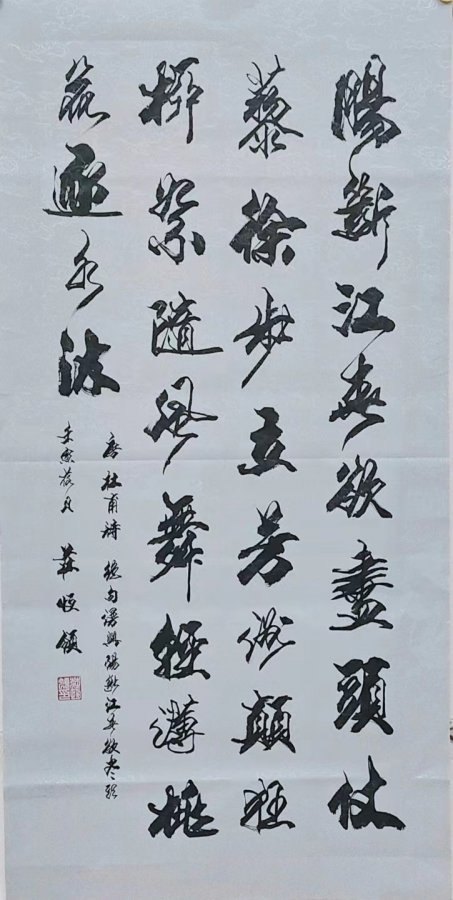 腸斷江春欲盡頭仗
藜徐步立芳洲顛狂
柳絮隨風舞輕薄桃
花逐水流
唐杜甫詩 絕句漫興腸斷江春欲尽頭